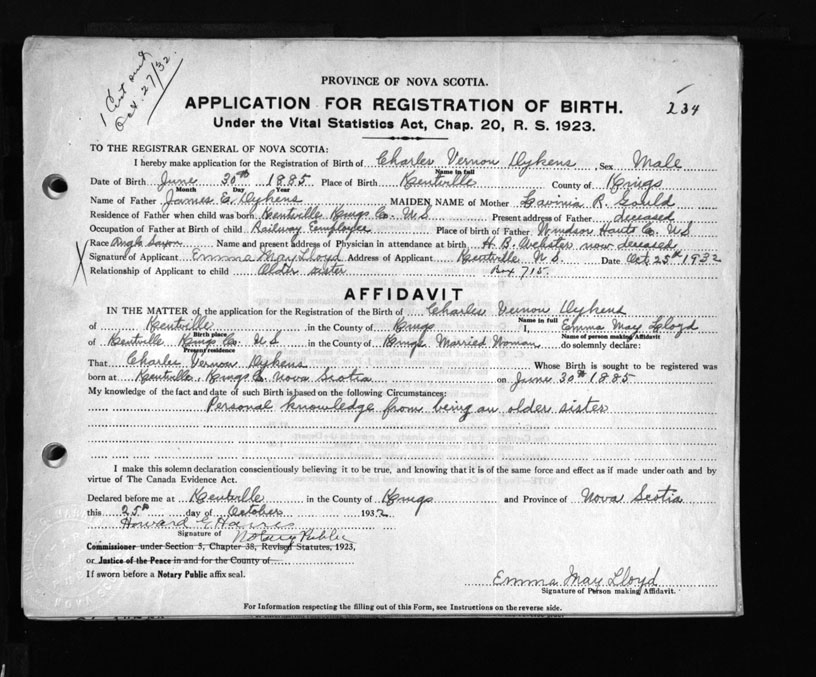 1 Cert and
Oct. 27/32.
PROVINCE OF NOVA SCOTIA.
APPLICATION FOR REGISTRATION OF BIRTH.
234
Under the Vital Statistics Act, Chap. 20, R. S. 1923.
TO THE REGISTRAR GENERAL OF NOVA SCOTIA:
I hereby make application for the Registration of Birth of Charles Vernon Dykens, Sex Male
Name in full
Date of Birth June 30th 1885 Place of Birth Kentville County of Kings
Month Day Year
Name of Father James E. Dykens MAIDEN NAME of Mother Lavinia R. Gould
Residence of Father when child was born Kentville Kings Co. N.S Present address of Father deceased
Occupation of Father at Birth of child Railway Employee Place of birth of Father Windsor Hants Co. N.S
Race Anglo Saxon Name and present address of Physician in attendance at birth H. B. Webster now deceased
Signature of Applicant Emma May Lloyd Address of Applicant Kentville N.S. Date Oct. 25th 1932
Relationship of Applicant to child Older sister Box 715.
AFFIDAVIT
IN THE MATTER of the application for the Registration of the Birth of Charles Vernon Dykens
Name in full
of Kentville in the County of Kings I, Emma May Lloyd
Birth place Name of person making Affidavit
of Kentville Kings Co. N.S in the County of Kings Married Woman do solemnly declare:
Present residence
That Charles Vernon Dykens Whose Birth is sought to be registered was
born at Kentville, Kings Co Nova Scotia on June 30th 1885
My knowledge of the fact and date of such Birth is based on the following Circumstances:
Personal knowledge from being an older sister
I make this solemn declaration conscientiously believing it to be true, and knowing that it is of the same force and effect as if made under oath and by
virtue of The Canada Evidence Act.
Declared before me at Kentville in the County of Kings and Province of Nova Scotia
this 25th day of October 1932
Howard E. Haines
Signature of Notary Public
Commissioner under Section 5, Chapter 38, Revised Statutes, 1923,
or Justice of the Peace in and for the County of
If sworn before a Notary Public affix seal.
Emma May Lloyd
Signature of Person making Affidavit.
For Information respecting the filling out of this Form, see Instructions on the reverse side.